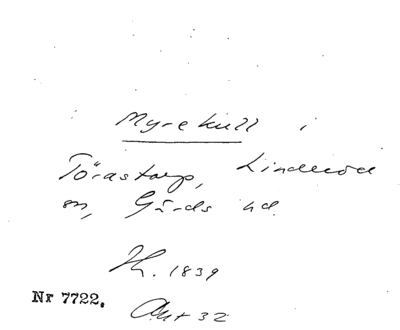 Myrekull i
Törastorp, Linderöd
sn, Gärds hd.
H. 1839
Nr 7722.
Akt 32